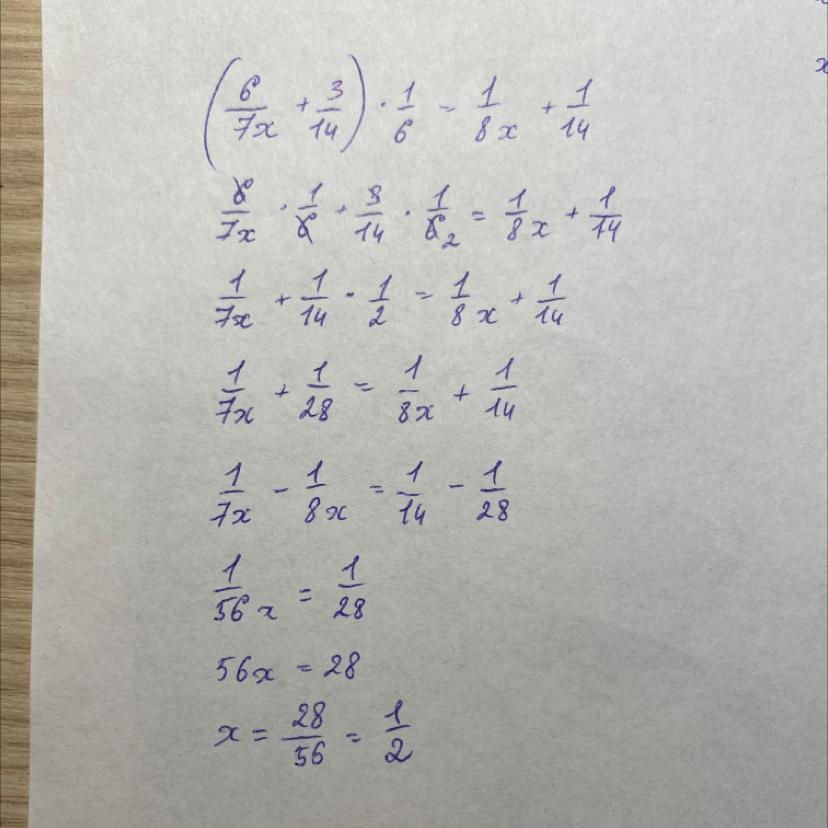 (6/7x + 3/14) · 1/6 = 1/8x + 1/14
6/7x · 1/6 + 3/14 · 1/6 2 = 1/8x + 1/14
1/7x + 1/14 · 1/2 = 1/8x + 1/14
1/7x + 1/28 = 1/8x + 1/14
1/7x - 1/8x = 1/14 - 1/28
1/56x = 1/28
56x = 28
x = 28/56 = 1/2